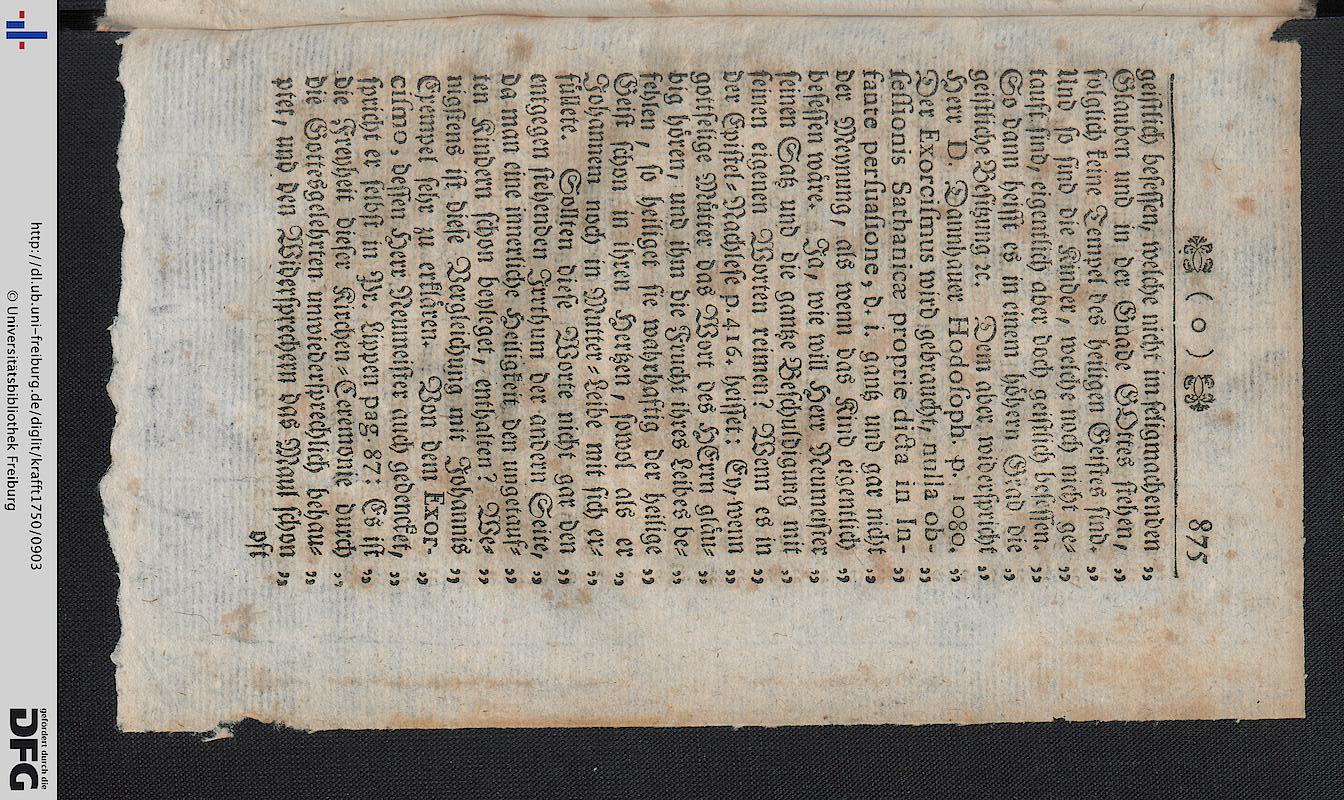 ( o ) 875
geistlich besessen, welche nicht im seligmachenden „
Glauben und in der Gnade GOttes stehen, „
folglich keine Tempel des heiligen Geistes sind. „
Und so sind die Kinder, welche noch nicht ge- „
taufft sind, eigentlich aber doch geistlich besessen. „
So dann heisst es in einem höhern Grad die „
geistliche Besitzung ꝛc. Dem aber widerspricht „
Herr D. Dannhauer Hodosoph. p. 1080. „
Der Exorcismus wird gebraucht, nulla ob- „
sessionis Sathanicæ proprie dicta in In- „
fante persuasione, d. i. gantz und gar nicht „
der Meynung, als wenn das Kind eigentlich „
besessen wäre. Ja, wie will Herr Neumeister „
seinen Satz und die gantze Beschuldigung mit „
seinen eigenen Worten reimen? Wenn es in „
der Epistel-Nachlese p. 416. heisset: Ey, wenn „
gottselige Mütter das Wort des HErrn gläu- „
big hören, und ihn die Frucht ihres Leibes be- „
fehlen, so heiliget sie wahrhaftig der heilige „
Geist schon in ihren Hertzen, sowol als er „
Johannem noch in Mutter-Leibe mit sich er- „
füllete. Sollen diese Worte nicht gar den „
entgegen stehenden Irrthum der andern Seite, „
da man eine innerliche Heiligkeit den ungetauf- „
ten Kindern schon beyleget, enthalten? We- „
nigstens ist diese Vergleichung mit Johannis „
Exempel sehr zu erklären. Von dem Exor- „
cismo, dessen Herr Neumeister auch gedencket, „
spricht er selbst in Pr. Lippen pag. 87: Es ist „
die Freyheit dieser Kirchen-Ceremonie durch „
die Gottesgelehrten unwiedersprechlich behau- „
ptet, und den Widersprechern das Maul schon „
oft
http://dl.ub.uni-freiburg.de/diglit/krafft1750/0903
© Universitätsbibliothek Freiburg
gefördert durch die
DFG